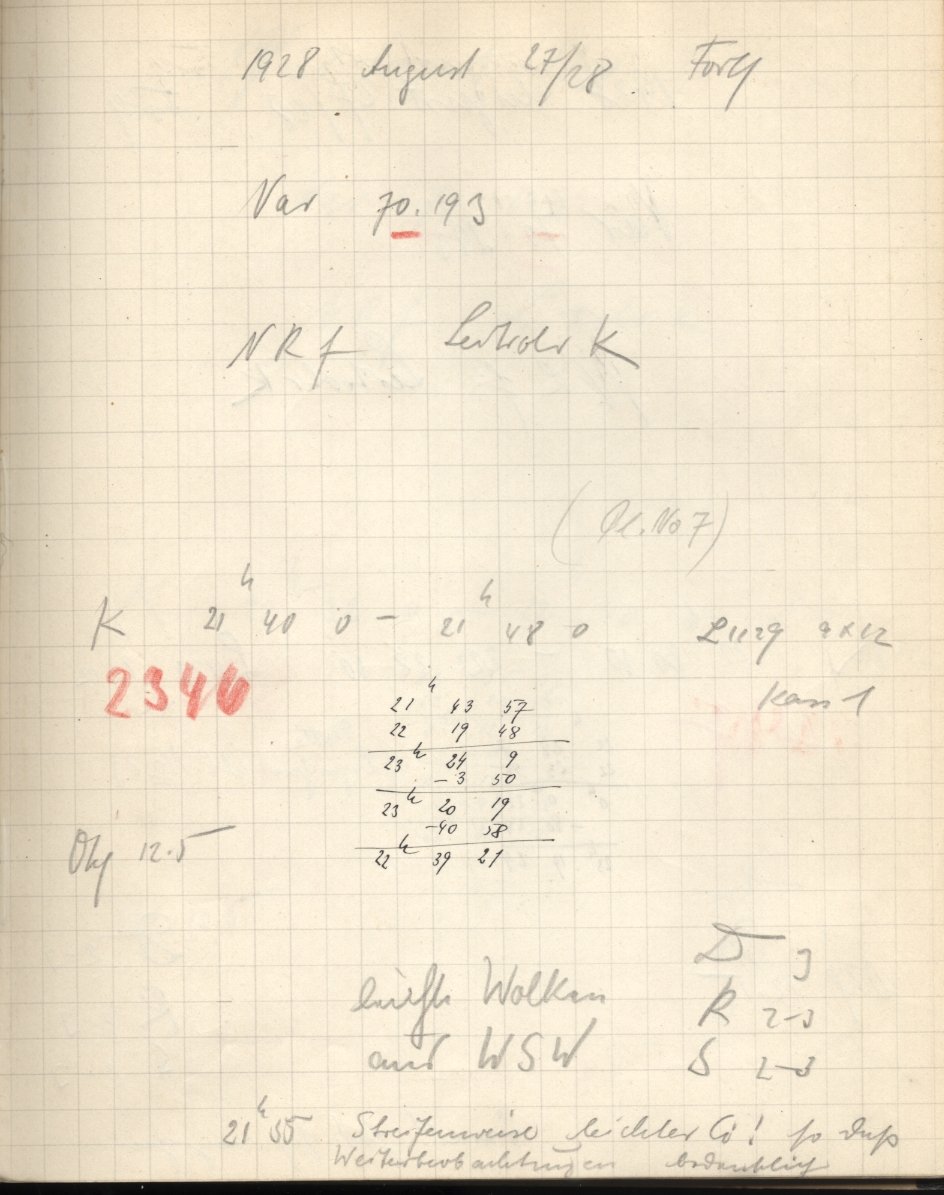 1928 August 27/28 Forts
Var 70.193
NRf Leitrohr K
(Pl. No 7)
K 21h 40 0 – 21h 48 0 9x12
2346 Kass 1
21h 43 57
22 19 48
23h 24 9
-3 50
23h 20 19
-40 58
22h 39 21
Obj 12.5
D 3
leichte Wolken R 2-3
aus WSW S 2-3
21h 55 Streifenweise leichter Ci! so daß
Weiterbeobachtungen bedenklich